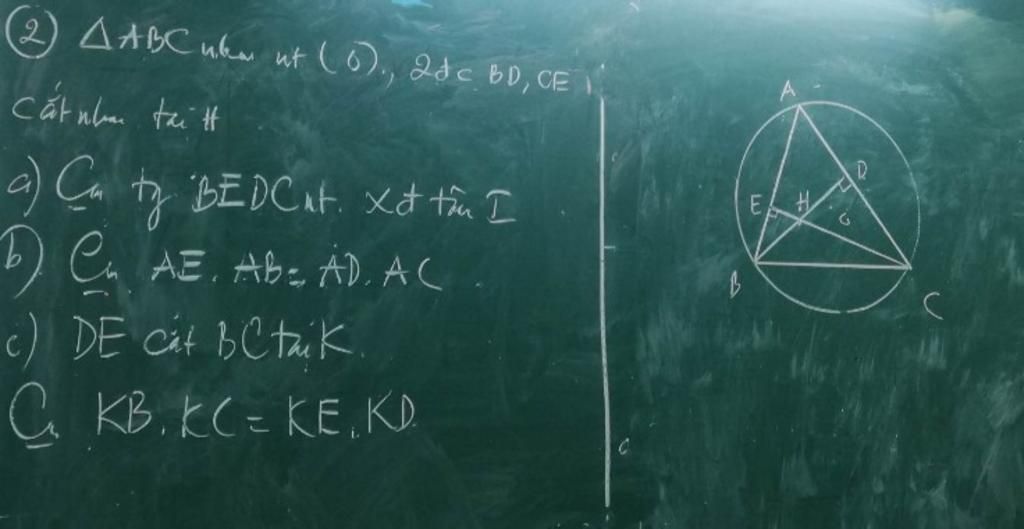 ② △ABC nhọn nt (O), 2đc BD, CE
cắt nhau tại H
a) Cm tg BEDC nt. Xđ tâm I
b) Cm AE. AB = AD. AC
c) DE cắt BC tại K
Cm KB. KC = KE. KD
A
D
E H
B
C